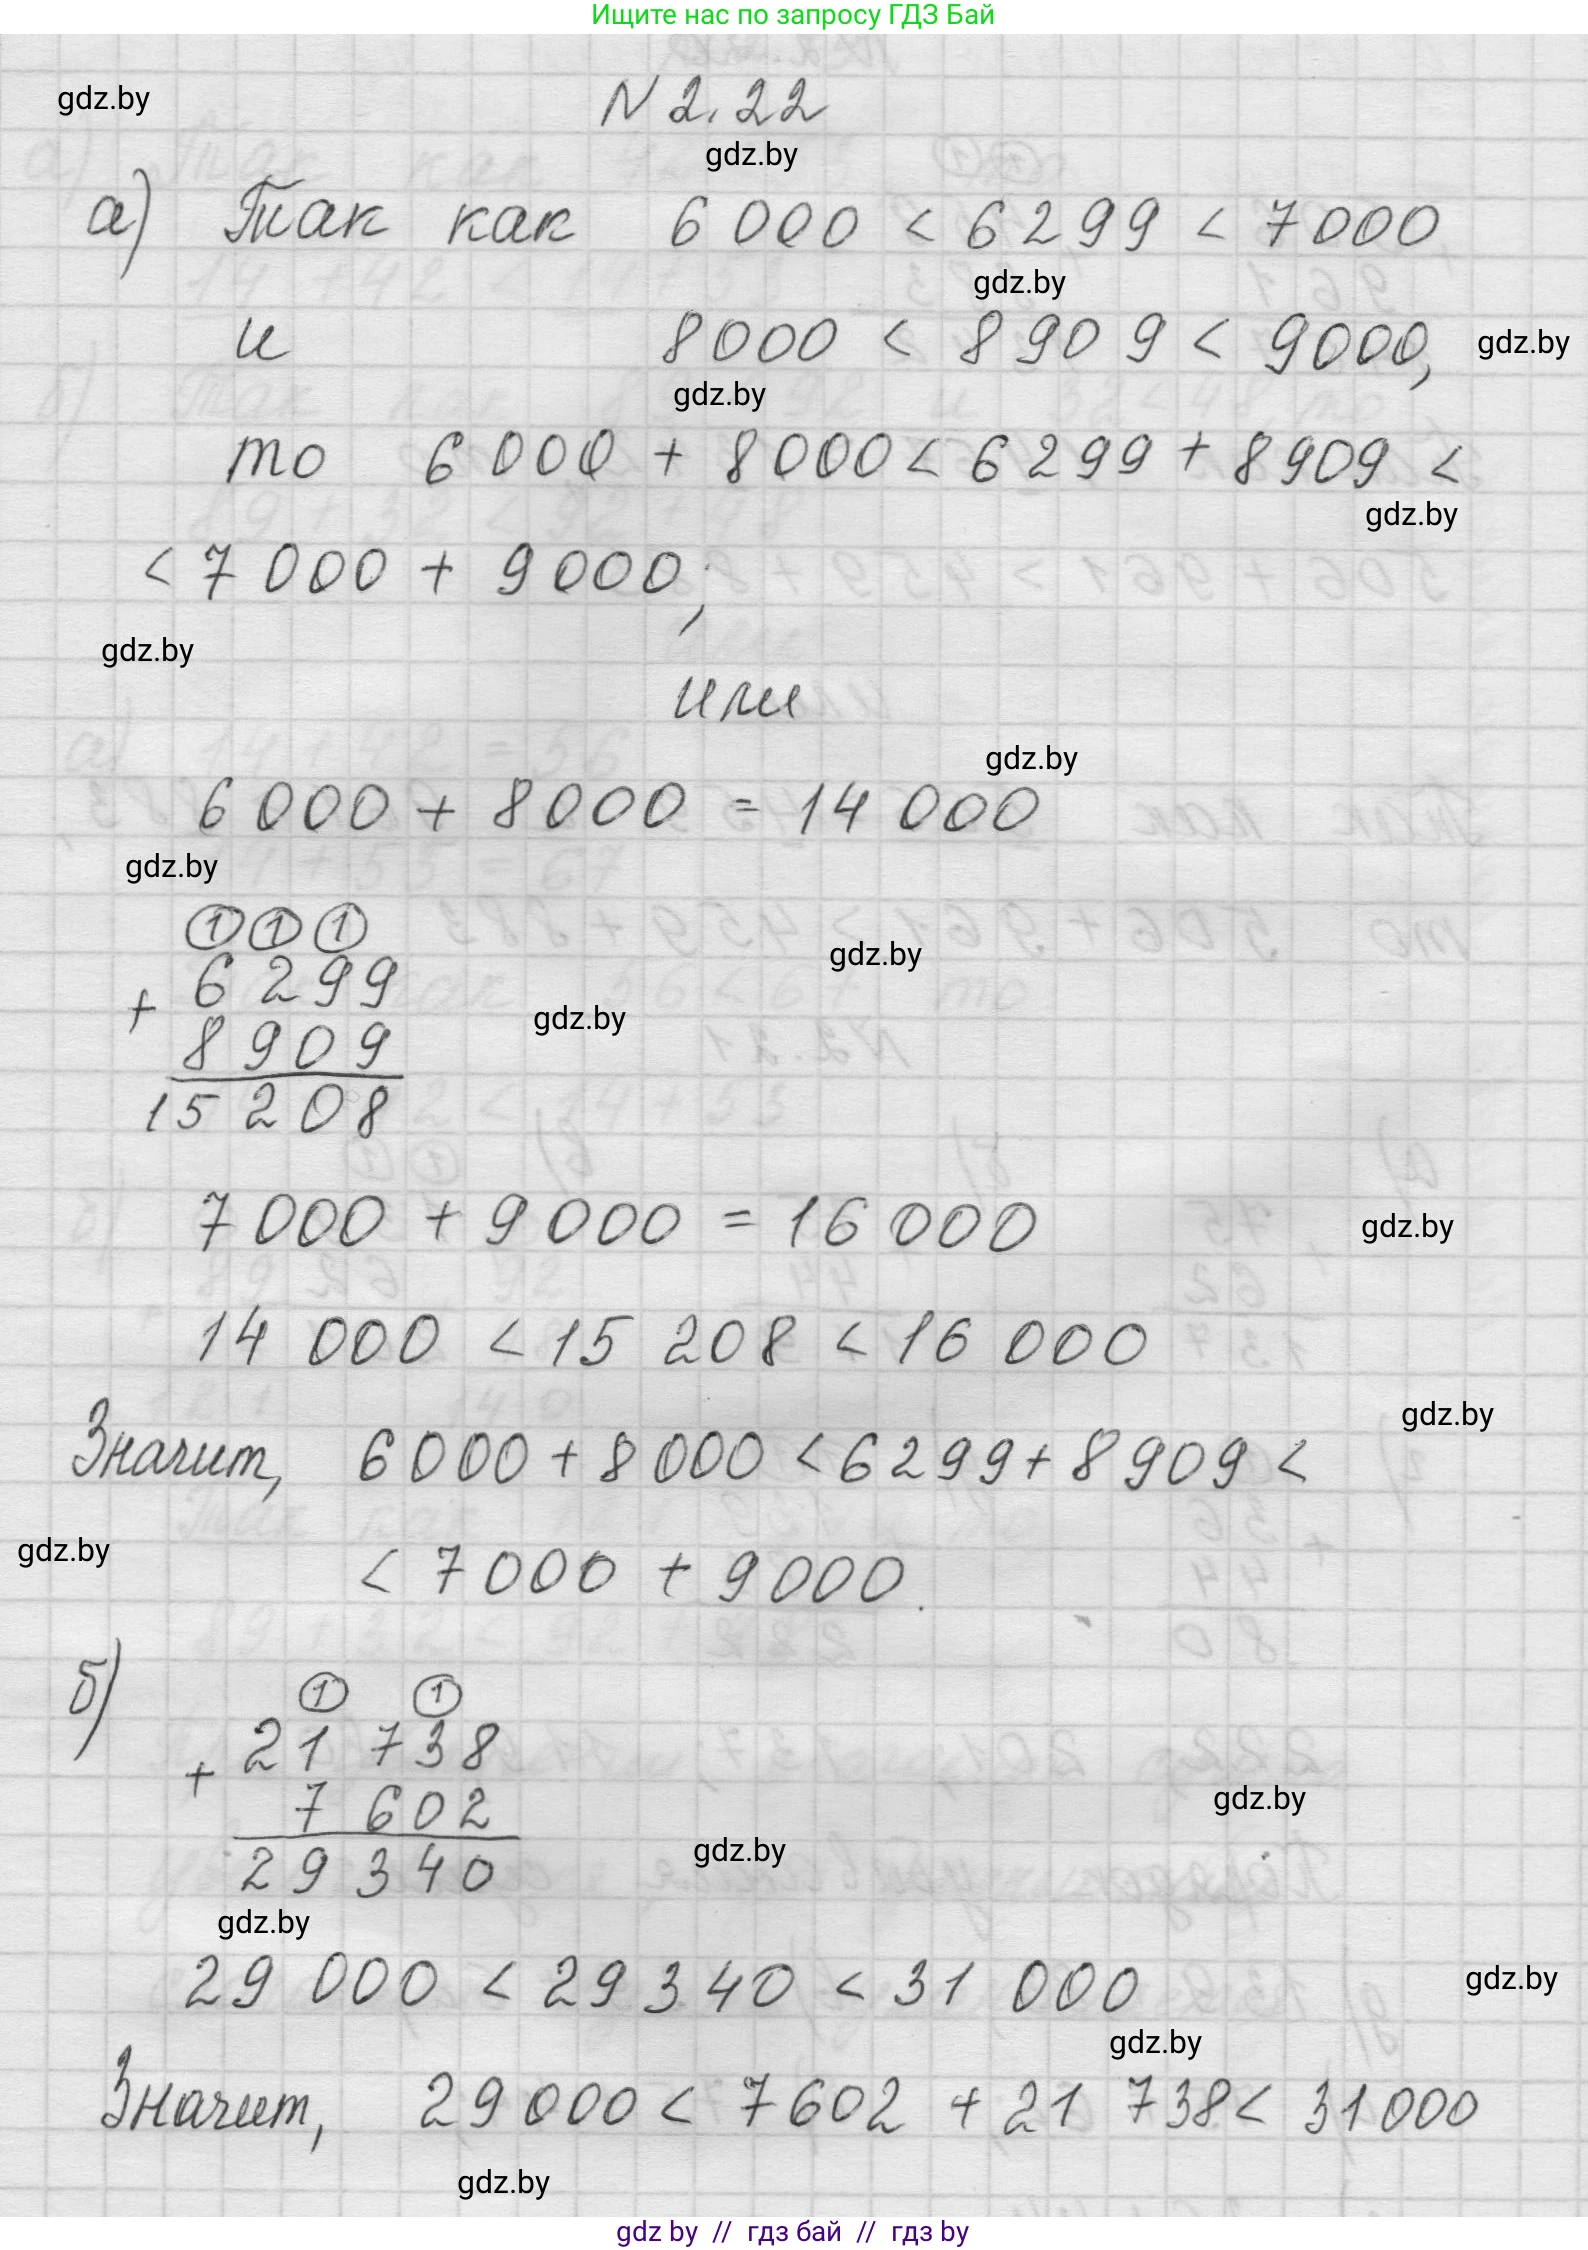 Ищите нас по запросу ГДЗ Бай
gdz.by
N 2.22
gdz.by
а) Так как 6 000 < 6 299 < 7000
gdz.by
и 8000 < 8909 < 9000,
gdz.by
gdz.by
то 6 000 + 8000 < 6299 + 8909 <
gdz.by
< 7 000 + 9000;
gdz.by
или
gdz.by
6 000 + 8000 = 14 000
gdz.by
1 1 1
gdz.by
+ 6 299
gdz.by
8 909
15 208
7 000 + 9 000 = 16 000
gdz.by
14 000 < 15 208 < 16 000
gdz.by
Значит, 6000 + 8000 < 6299 + 8909 <
gdz.by
< 7000 + 9000.
б)
1 1
+ 21 738
gdz.by
7 602
gdz.by
29 340
gdz.by
29 000 < 29 340 < 31 000
gdz.by
gdz.by
Значит, 29000 < 7602 + 21 738 < 31000
gdz.by
gdz by // гдз бай // gdz by